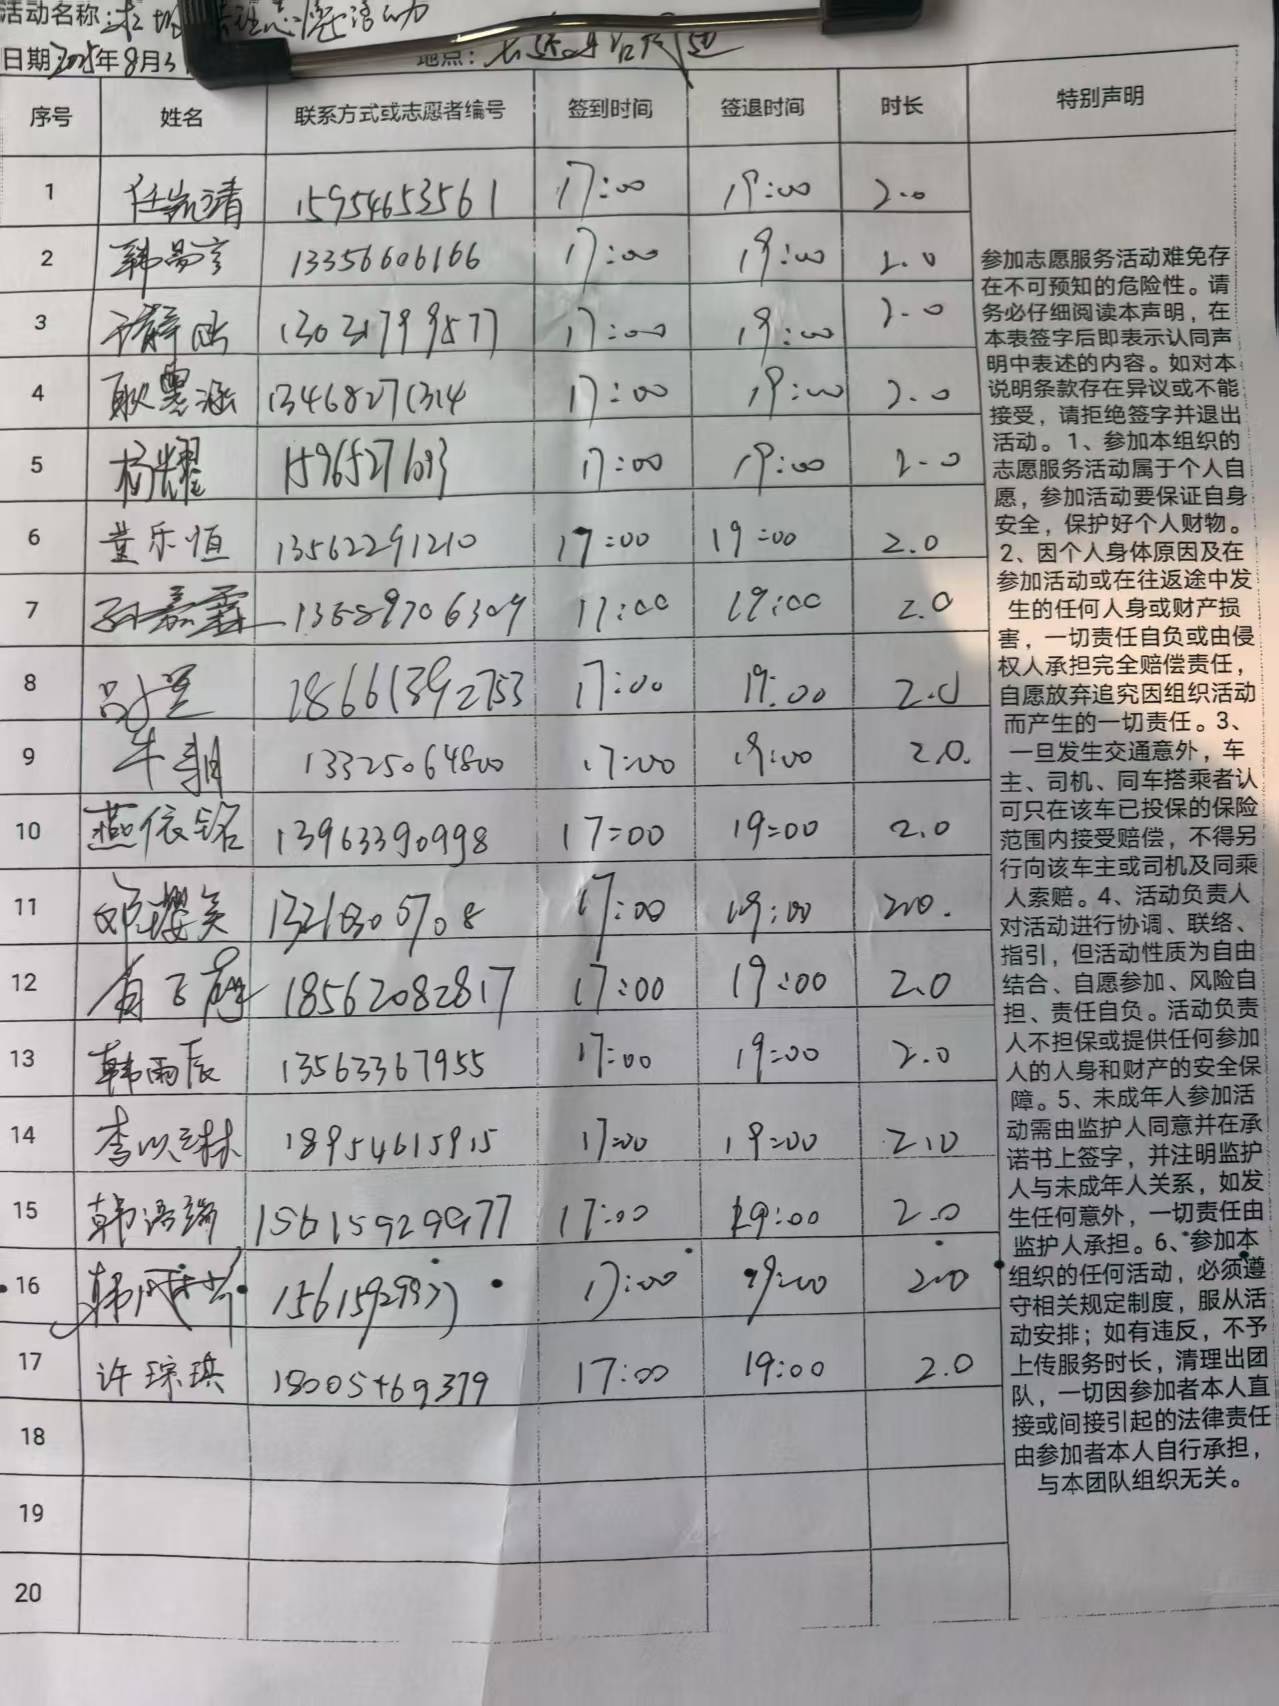 活动名称:
日期 2025年8月3
地点:
序号 姓名 联系方式或志愿者编号 签到时间 签退时间 时长 特别声明
1 任凯清 15954653561 17:00 19:00 2.0
2 韩易言 13356606166 17:00 19:00 2.0
3 13031799877 17:00 19:00 2.0
4 耿墨涵 13468271314 17:00 19:00 2.0
5 杨耀 17:00 19:00 2.0
6 董乐恒 13562291210 17:00 19:00 2.0
7 孙嘉霖 13589706309 17:00 19:00 2.0
8 18661392753 17:00 19:00 2.0
9 牛翱 13325064800 17:00 19:00 2.0.
10 燕依铭 13963390998 17:00 19:00 2.0
11 17:00 19:00 2.0.
12 18562082817 17:00 19:00 2.0
13 韩雨辰 13563367955 17:00 19:00 2.0
14 18954615915 17:00 19:00 2.0
15 韩语瑞 15615929977 17:00 19:00 2.0
16 15615929977 17:00 19:00 2.0
17 许琮琪 18005469379 17:00 19:00 2.0
18
19
20
参加志愿服务活动难免存
在不可预知的危险性。请
务必仔细阅读本声明，在
本表签字后即表示认同声
明中表述的内容。如对本
说明条款存在异议或不能
接受，请拒绝签字并退出
活动。1、参加本组织的
志愿服务活动属于个人自
愿，参加活动要保证自身
安全，保护好个人财物。
2、因个人身体原因及在
参加活动或在往返途中发
生的任何人身或财产损
害，一切责任自负或由侵
权人承担完全赔偿责任，
自愿放弃追究因组织活动
而产生的一切责任。3、
一旦发生交通意外，车
主、司机、同车搭乘者认
可只在该车已投保的保险
范围内接受赔偿，不得另
行向该车主或司机及同乘
人索赔。4、活动负责人
对活动进行协调、联络、
指引，但活动性质为自由
结合、自愿参加、风险自
担、责任自负。活动负责
人不担保或提供任何参加
人的人身和财产的安全保
障。5、未成年人参加活
动需由监护人同意并在承
诺书上签字，并注明监护
人与未成年人关系，如发
生任何意外，一切责任由
监护人承担。6、参加本
组织的任何活动，必须遵
守相关规定制度，服从活
动安排；如有违反，不予
上传服务时长，清理出团
队，一切因参加者本人直
接或间接引起的法律责任
由参加者本人自行承担，
与本团队组织无关。